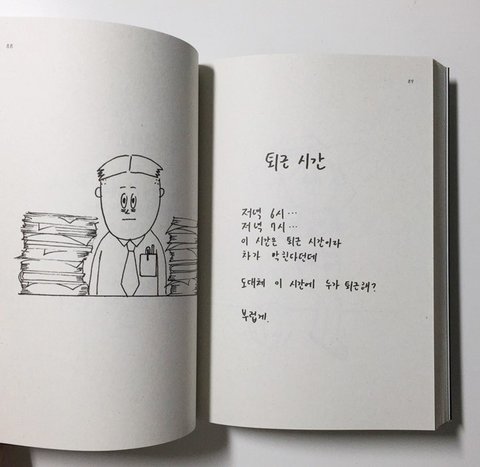 88
89
퇴근 시간
저녁 6시...
저녁 7시...
이 시간은 퇴근 시간이라
차가 막힌다던데
도대체 이 시간에 누가 퇴근해?
부럽게.